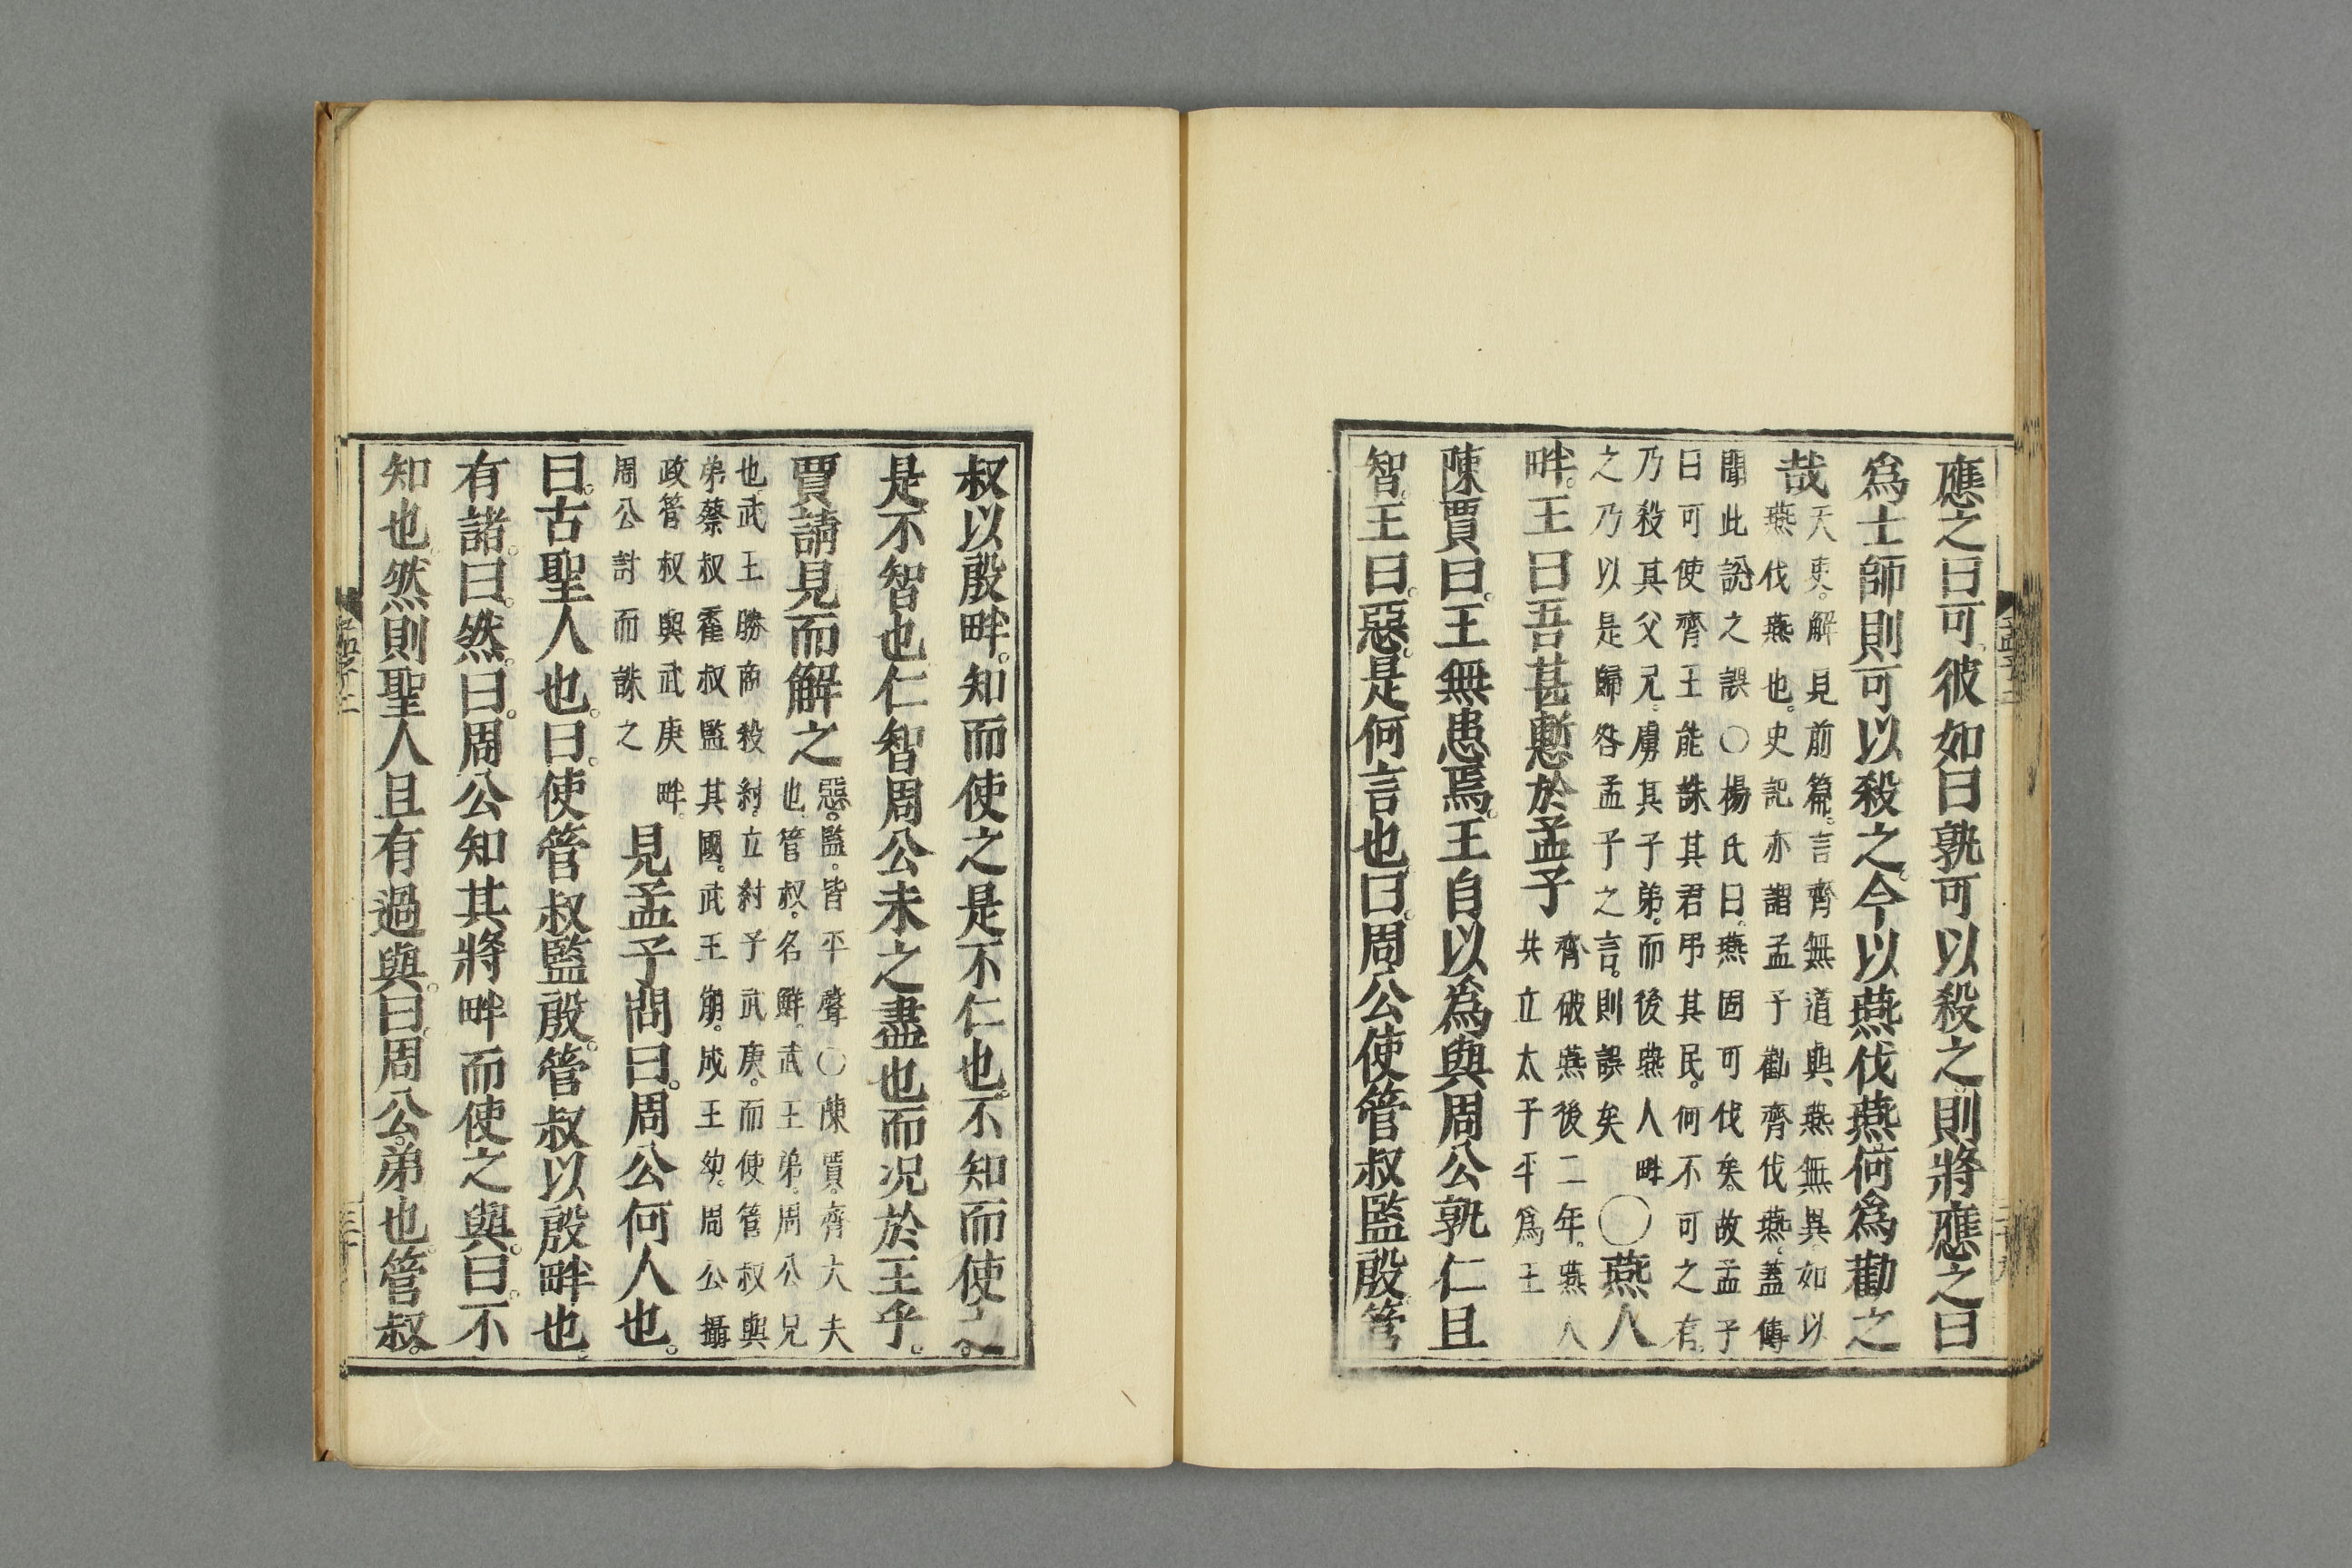 應之曰可彼如曰孰可以殺之則將應之曰
爲士師則可以殺之今以燕伐燕何爲勸之
哉
天吏。解見前篇。言齊無道與燕無異如以
燕伐燕也。史記亦謂孟子勸齊伐燕。蓋傳
聞此說之誤〇楊氏曰。燕固可伐矣。故孟子
曰可使齊王能誅其君弔其民。何不可之有。
乃殺其父兄。虜其子弟。而後燕人畔
之乃以是歸咎孟子之言。則誤矣
〇燕人
畔。王曰吾甚慙於孟子
齊破燕後二年。燕人
共立太子平爲王
陳賈曰。王無患焉。王自以爲與周公孰仁且
智。王曰。惡。是何言也。曰。周公使管叔監殷。管
叔以殷畔。知而使之是不仁也。不知而使之。
是不智也仁智周公未之盡也而况於王乎。
賈請見而解之
惡。監。皆平聲〇陳賈。齊大夫
也。管叔。名鮮。武王弟。周公兄
也。武王勝商殺紂。立紂子武庚。而使管叔與
弟蔡叔霍叔監其國。武王崩。成王幼。周公攝
政管叔與武庚畔。
周公討而誅之
見孟子問曰。周公何人也。
曰。古聖人也。曰。使管叔監殷。管叔以殷畔也。
有諸。曰。然。曰。周公知其將畔而使之與。曰。不
知也。然則聖人且有過與。曰。周公。弟也。管叔。